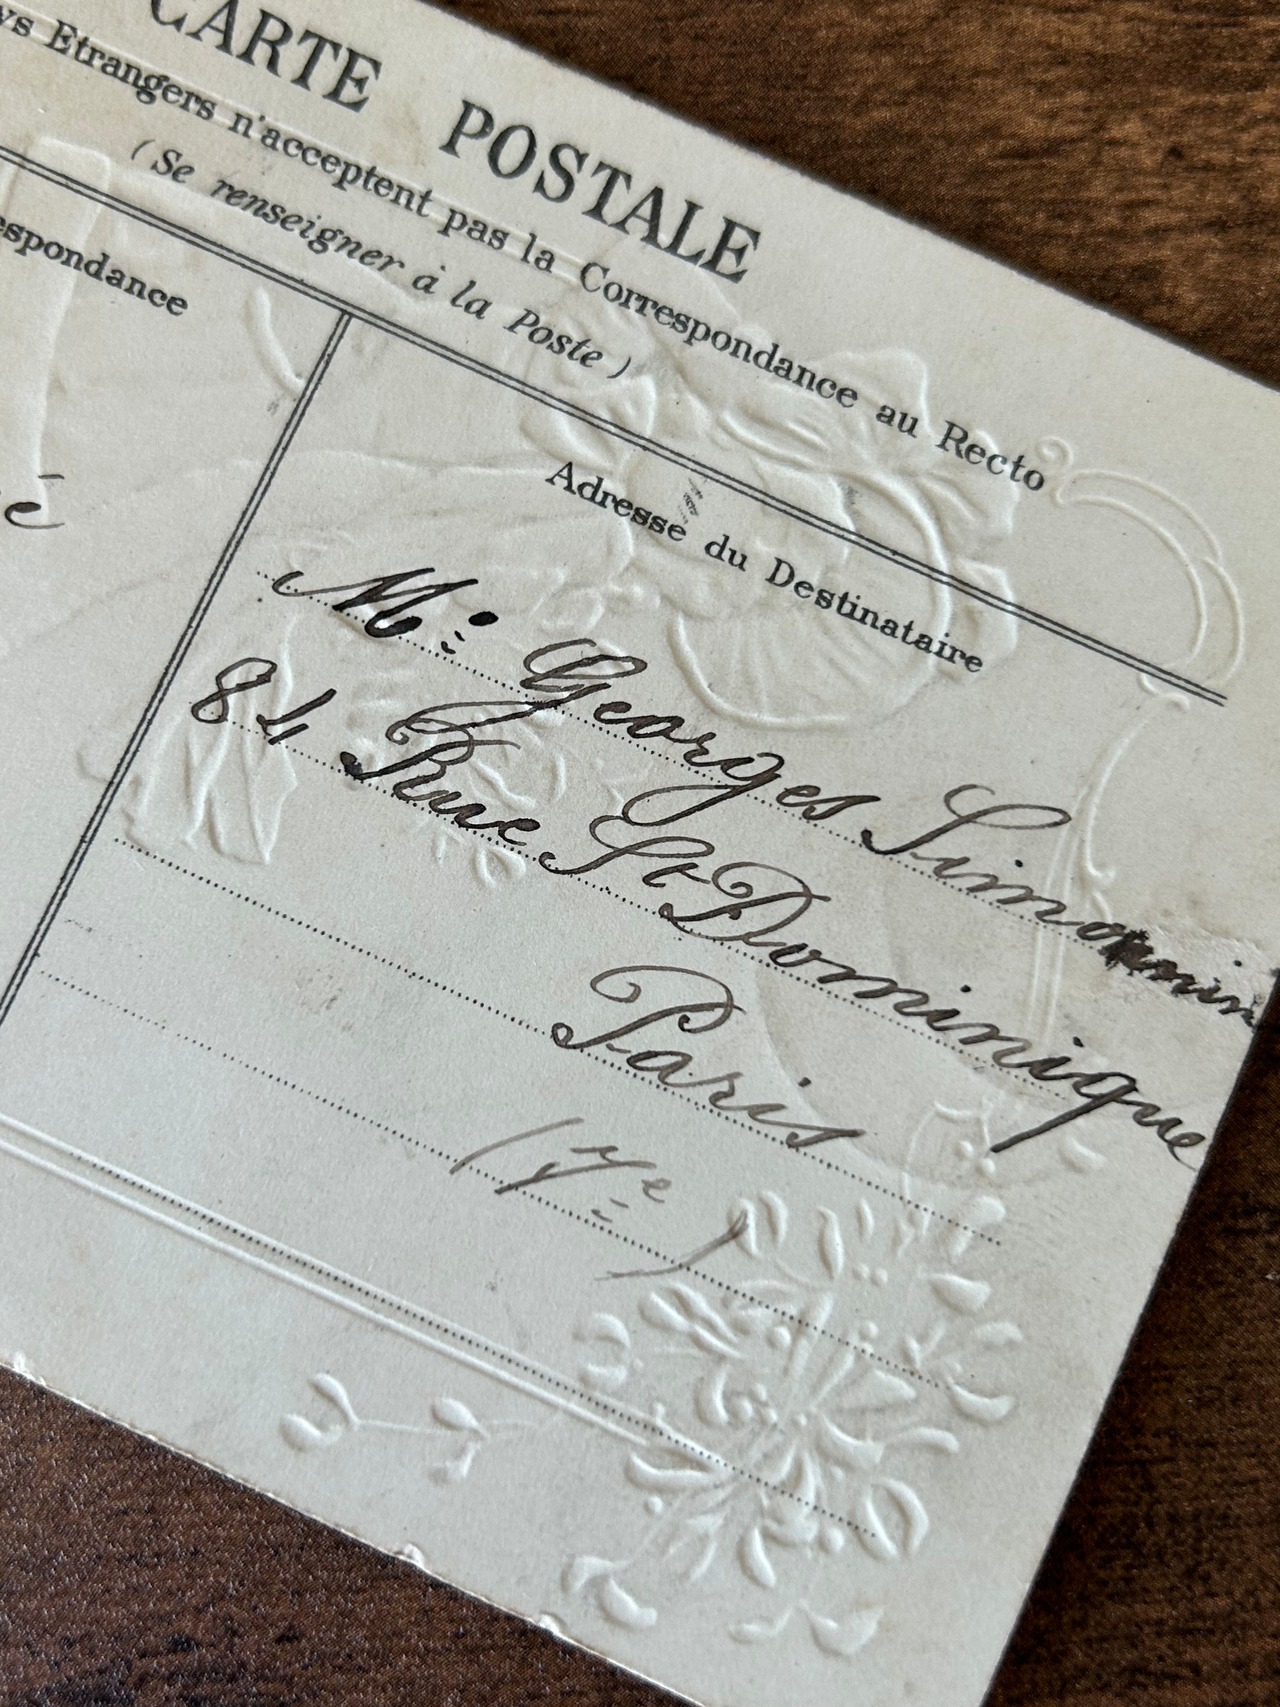 CARTE POSTALE
ys Etrangers n'acceptent pas la Correspondance au Recto
(Se renseigner à la Poste)
espondance
Adresse du Destinataire
é
Mr. Georges Simonnin
84 Rue St Dominique
Paris
(7e)